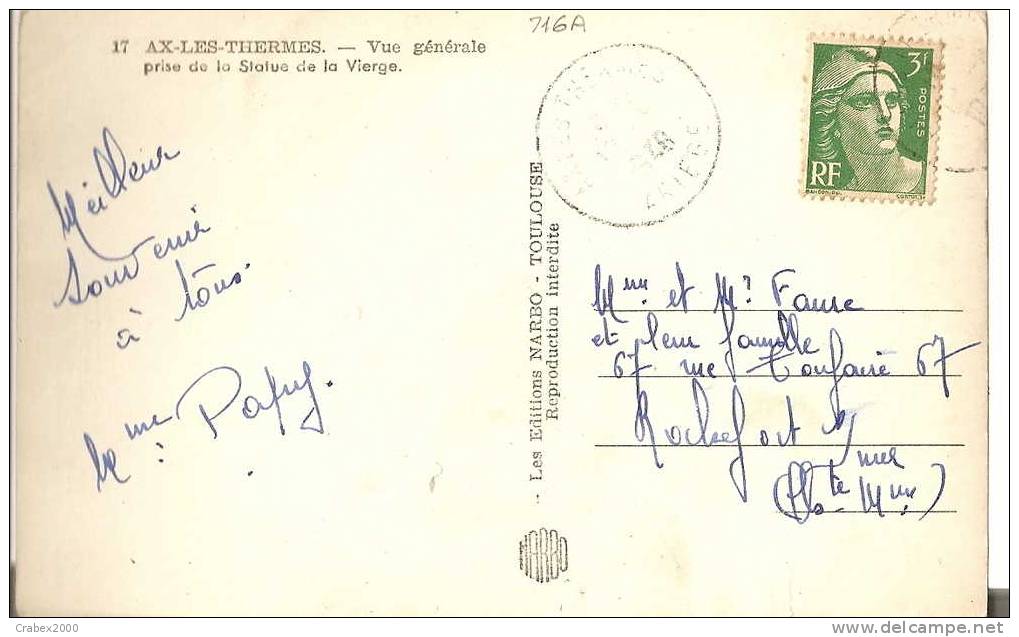 716A
17 AX-LES-THERMES. — Vue générale
prise de la Statue de la Vierge.
Meilleur
souvenir
à tous
Mme
AX-LES-THERMES
ARIEGE
3F
POSTES
RF
Les Editions NARBO - TOULOUSE
Reproduction interdite
NARBO
Mme et Mr Faure
et leur famille
67 rue Toufaire 67
Rochefort s/ mer
(Chte Mme)
Crabex2000
www.delcampe.net